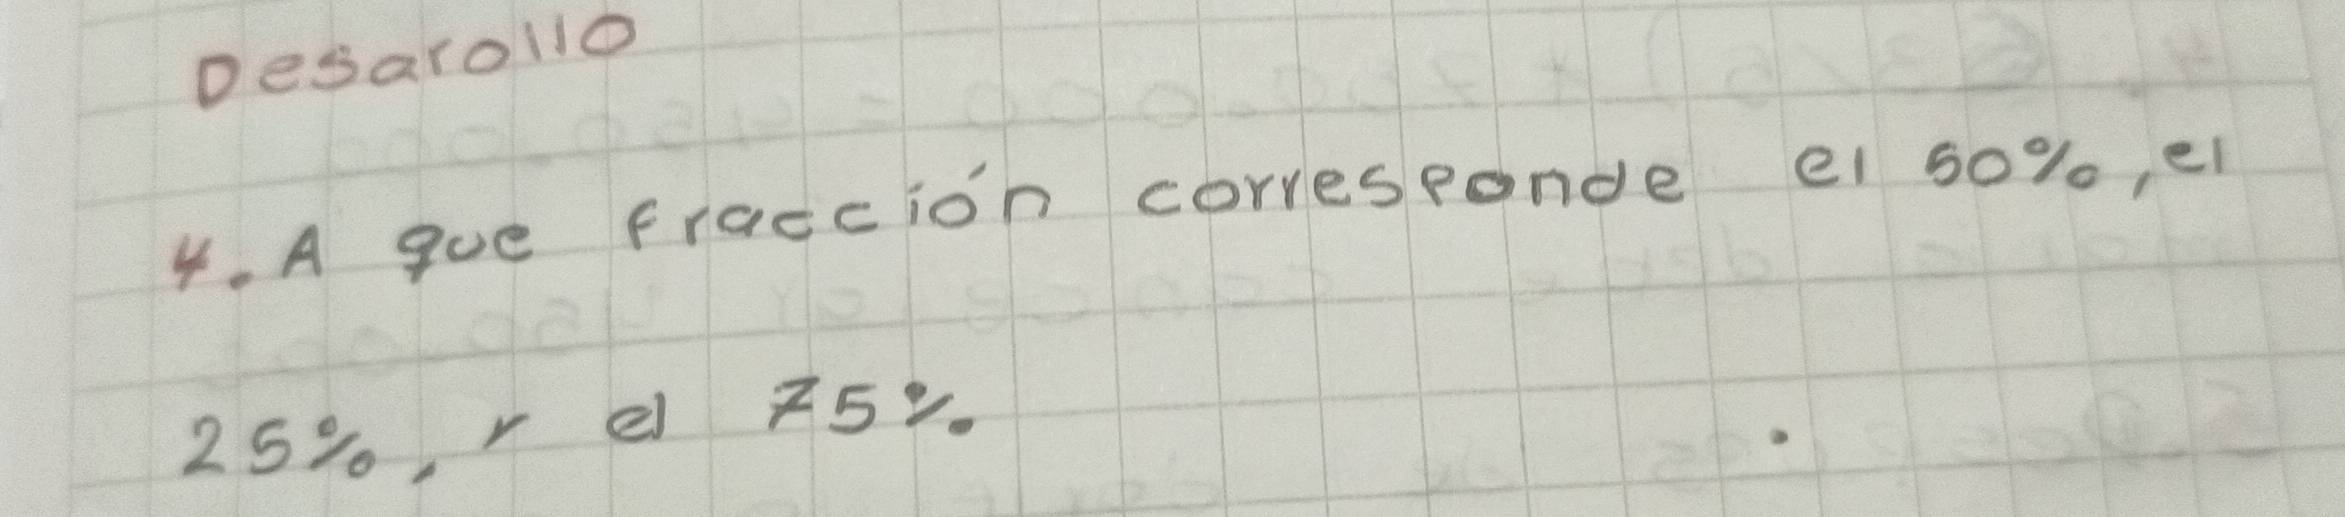 Desarollo
4. A que fracción corresponde el 50%, el
25%, y el 75%.